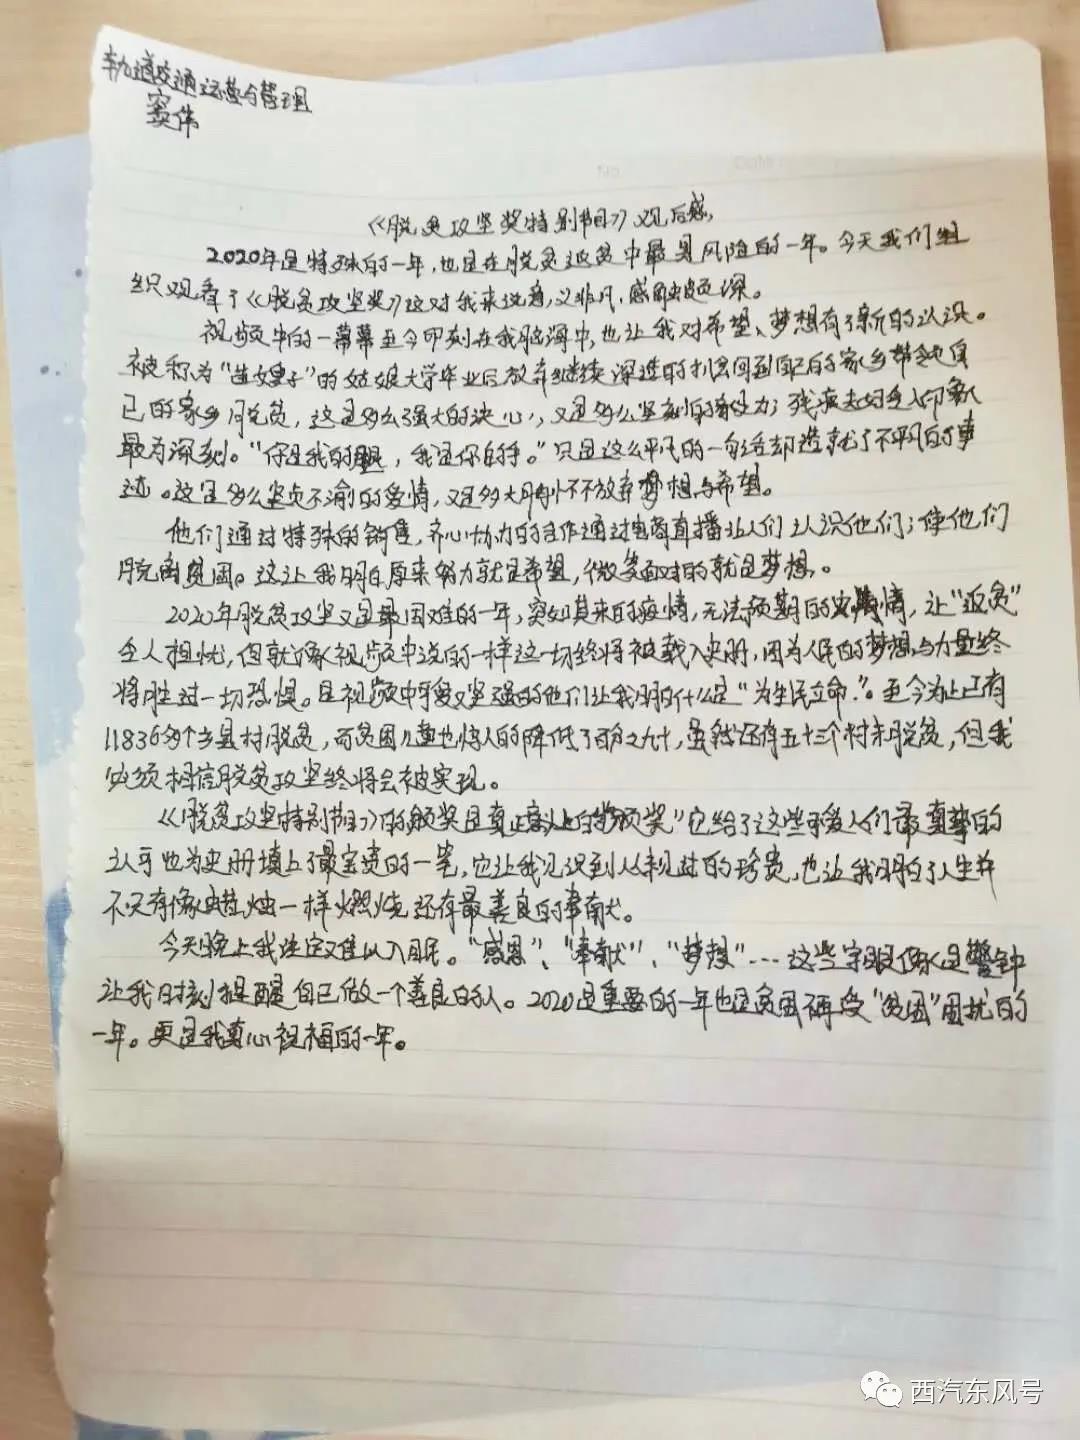 轨道交通运营与管理
窦伟
《脱贫攻坚奖特别节目》观后感
2020年是特殊的一年,也是在脱贫返贫中最具风险的一年。今天我们组
织观看了《脱贫攻坚奖》这对我来说意义非凡,感触颇深。
视频中的一幕幕至今印刻在我脑海中,也让我对希望、梦想有了新的认识。
被称为“ ”的姑娘大学毕业后放弃继续深造的机会回到自己的家乡带领自
己的家乡脱贫,这是多么强大的决心,又是多么坚 的 力;残疾夫妇令人印象
最为深刻。“你是我的腿,我是你的手。”只是这么平凡的一句话却造就了不平凡的事
迹。这是多么坚贞不渝的爱情,又是多 不放弃梦想与希望。
他们通过特殊的销售,齐心协力的合作通过电商直播让人们认识他们;使他们
脱离贫困。这让我明白原来努力就是希望,微笑面对的就是梦想。
2020年脱贫攻坚又是最困难的一年,突如其来的疫情,无法预期的 情,让“返贫”
令人担忧,但就像视频中说的一样这一切终将被载入史册,因为人民的梦想与力量终
将胜过一切恐惧。且视频中可爱又坚强的他们让我明白什么是“为生民立命”。至今为止已有
11836多个乡县村脱贫,而贫困 也惊人的降低了百分之九十,虽然还有五十三个村未脱贫,但我
必须相信脱贫攻坚终将会被实现。
《脱贫攻坚特别节目》的颁奖是真正意义上的“颁奖”它给了这些可爱人们最真挚的
认可也为史册填上了最宝贵的一笔,它让我见识到从未见过的珍贵,也让我明白了人生并
不只有像蜡烛一样燃烧还有最善良的奉献。
今天晚上我注定难以入眠。“感恩”、“奉献”、“梦想”...这些字眼像是警钟
让我时刻提醒自己做一个善良的人。2020是重要的一年也是贫困不再受“贫困”困扰的
一年。更是我真心祝福的一年。
西汽东风号